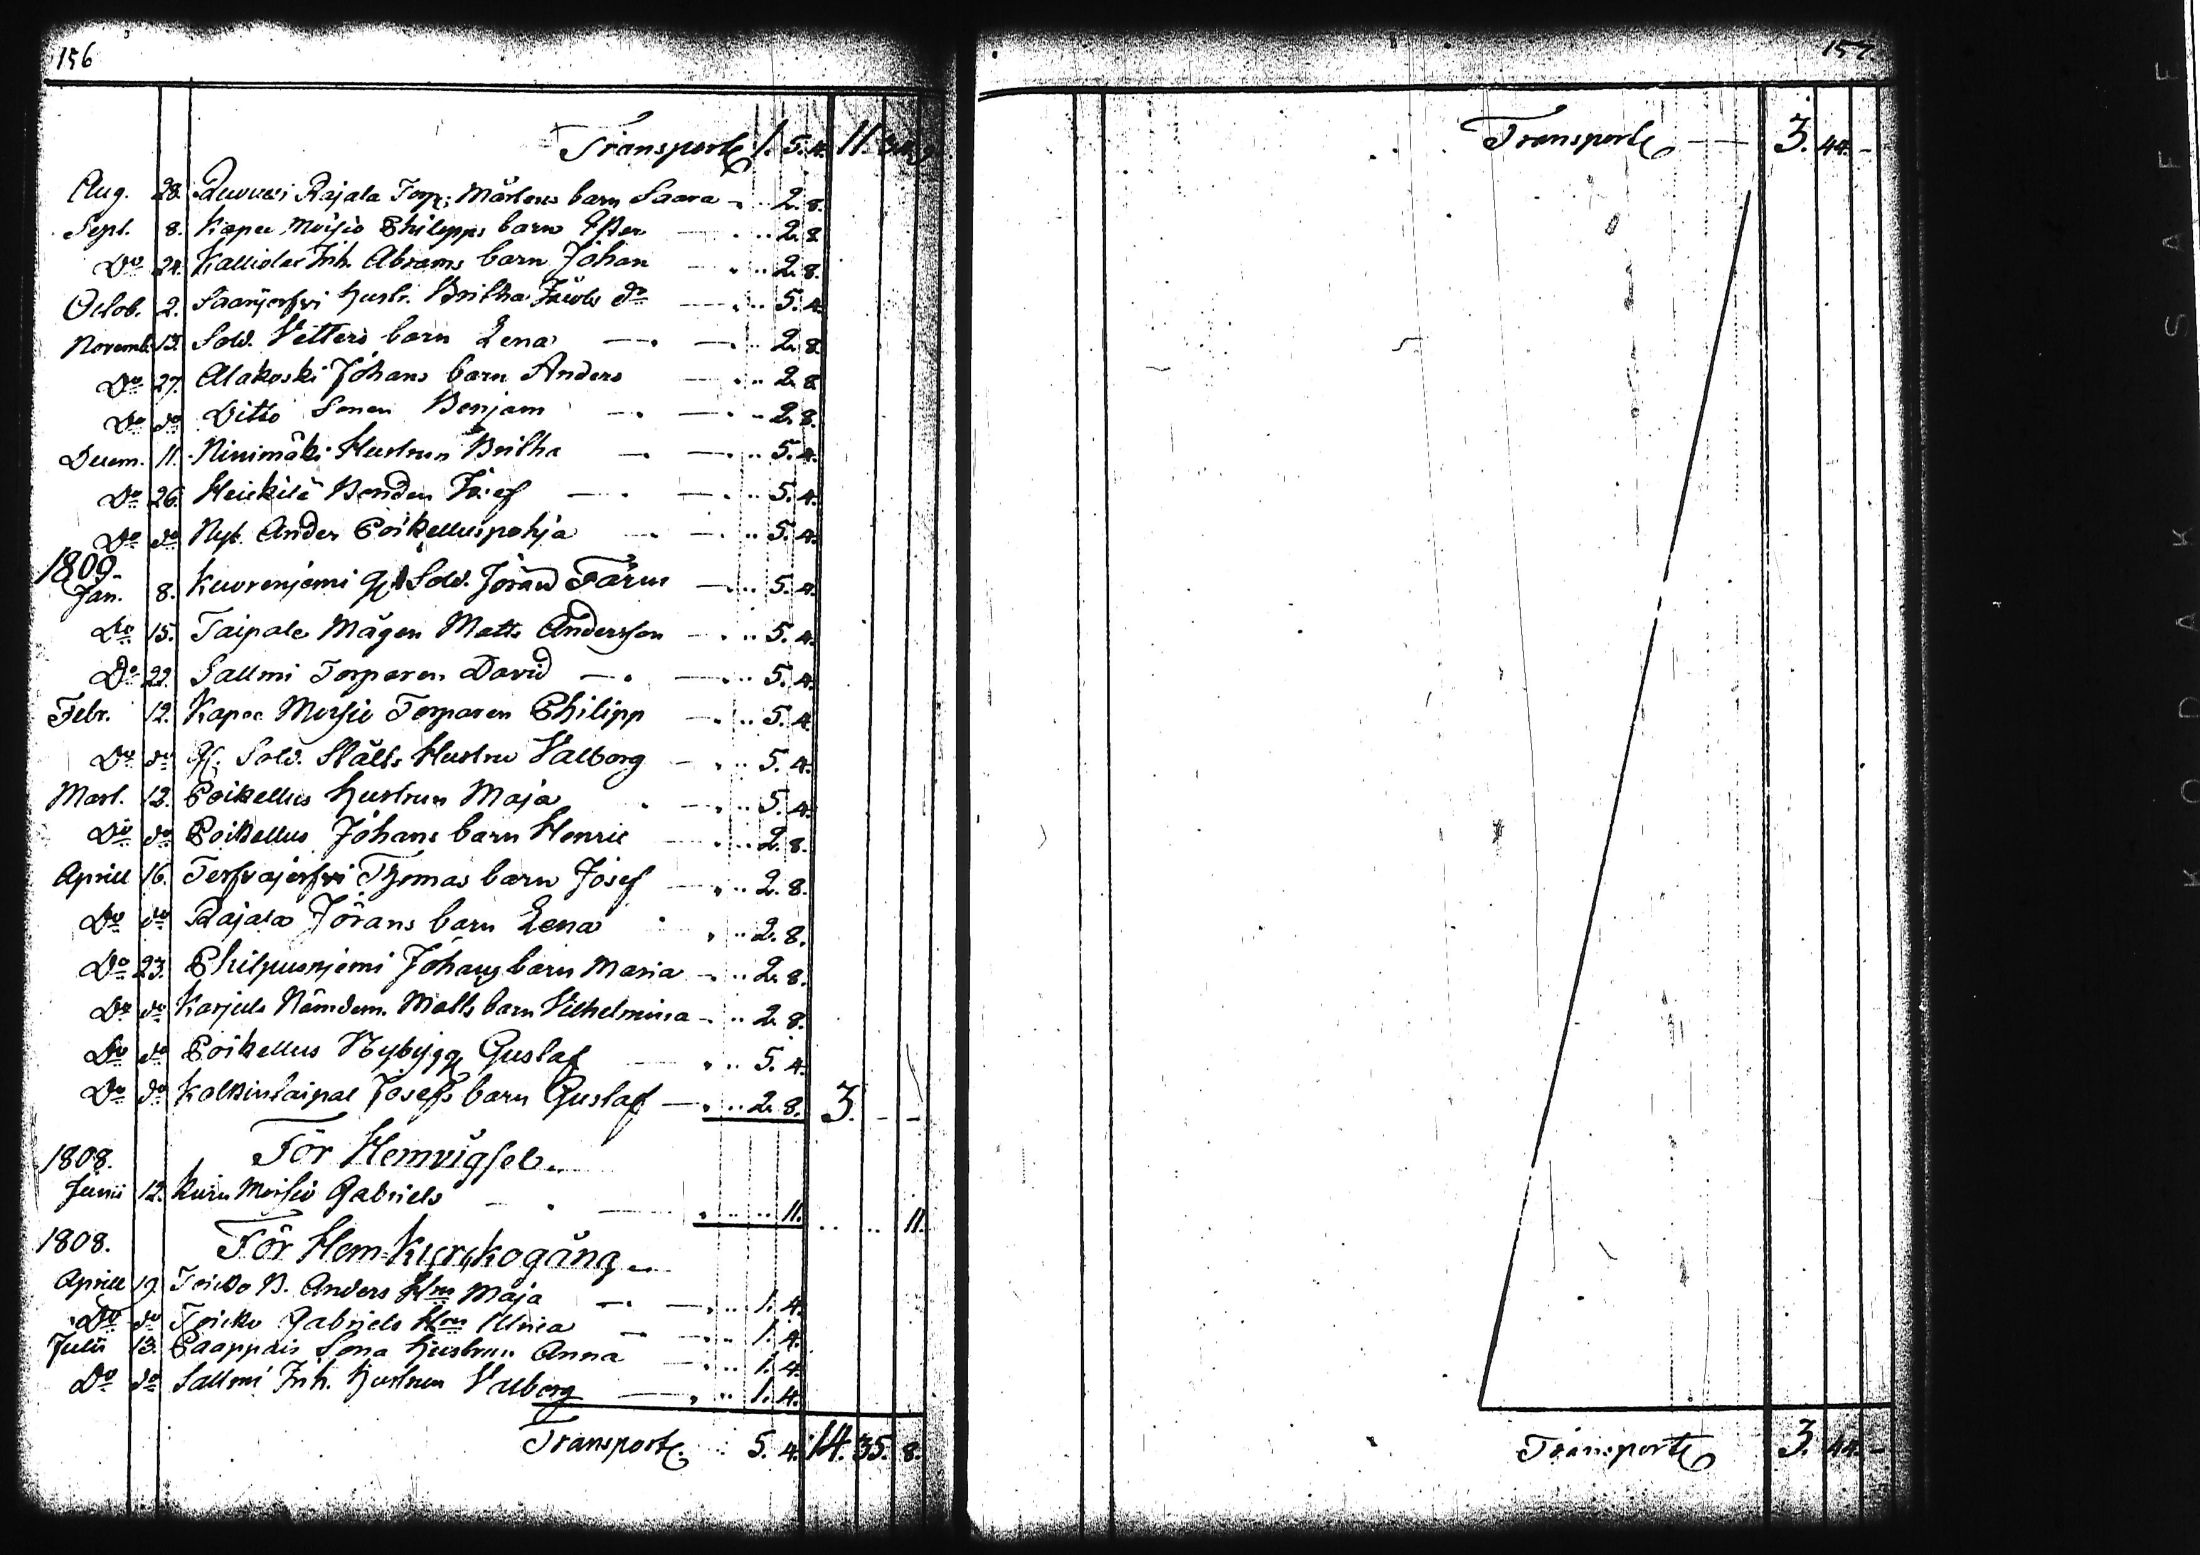 156
Transport 1. 5. 4. 11.
Aug. 28. Rajala Torp: Mårtens barn Saara 2. 8.
Sept. 8. Kapee Moisio Philipps barn Ester 2. 8.
Do 24. Kalliola Inh. Abrams barn Johan 2. 8.
Octob. 2. Saarijerfvi hustr. Britha Jacobs do 5. 4.
Novemb. 13. Sold. Vetters barn Lena 2. 8.
Do 27. Alakoski Johans barn Anders 2. 8.
Do do Ditto Sonen Benjam 2. 8.
Decem. 11. Ninimäki Hustrun Britha 5. 4.
Do 26. Heickilä Bonden Josef 5. 4.
Do do Nyb. Anders Poikelluspohja 5. 4.
1809.
Jan. 8. Kuorenjemi Sold. Jöran Färm 5. 4.
Do 15. Taipale Mågen Matts Andersson 5. 4.
Do 22. Sallmi Torparen David 5. 4.
Febr. 12. Kapee Moisio Torparen Philipp 5. 4.
Do do Sold. Stålts Hustru Valborg 5. 4.
Mart. 12. Poikellus hustrun Maja 5. 4.
Do do Poikellus Johans barn Henric 2. 8.
Aprill 16. Terfvajerfvi Thomas barn Josef 2. 8.
Do do Rajala Jörans barn Lena 2. 8.
Do 23. Philpusnjemi Johans barn Maria 2. 8.
Do do Karjula Nämdem. Matts barn Vilhelmina 2. 8.
Do do Poikellus Nybygg Gustaf 5. 4.
Do do Kolkintaipal Josefs barn Gustaf 2. 8. 3. - -
För Hemvigsel.
1808.
Junii 12. Moisio Gabriels 11. 11.
1808. För Hem-Kyrkogång
Aprill 19. Toicko B. Anders Hru Maja 1. 4.
Do do Toicko Gabriels Hru Ulrica 1. 4.
Julii 13. Paappais Sona hustrun Anna 1. 4.
Do do Sallmi Inh. hustrun Valborg 1. 4.
Transport 5. 4. 14. 35. 8.
157.
Transport 3. 44. -
Transport 3. 44. -
KODAK SAFE